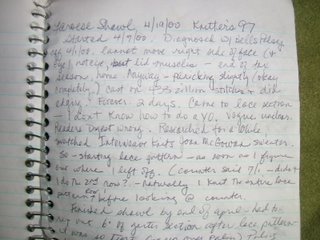 Faroese Shawl, 4/19/00 Knitter's 97
Started 4/9/00. Diagnosed w/ Bells Palsy
4/1/00. Cannot move right side of face (&
eye) not eye, but lid muscles - end of the
season, home Payday - panicking slightly (okay
completely) cast on million stitches - did
edging. Forever. 2 days. Came to lace section
- I don't know how to do a YO. Vogue unclear.
Readers Digest wrong. Researched for a while
matched Interweave Knits sweater.
So - starting lace pattern - as soon as I figure
out where I left off. (Counter said 71 - didn't
I do the 2nd row? - naturally I knit the entire
row before looking @ counter.
Finished shawl by end of April - had to
rip out 6" of garter section after lace pattern
it was so